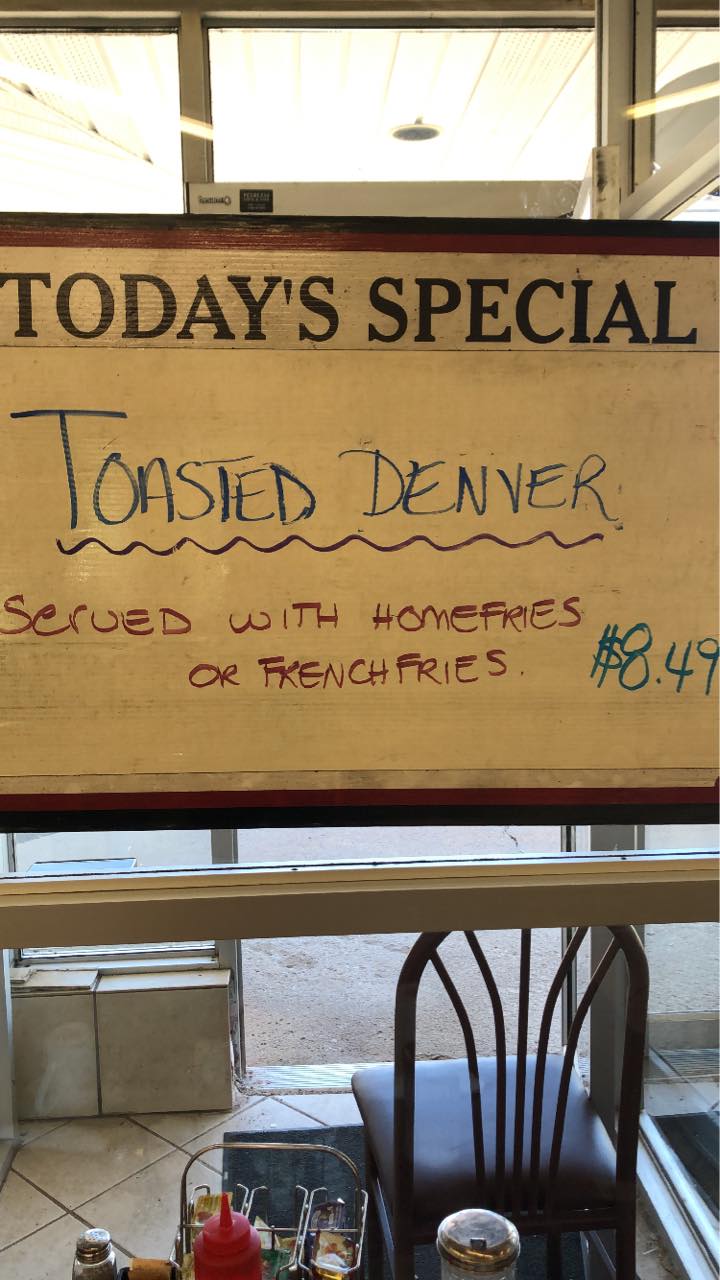 TODAY'S SPECIAL
TOASTED DENVER
SERVED WITH HOMEFRIES
OR FRENCHFRIES.
$8.49